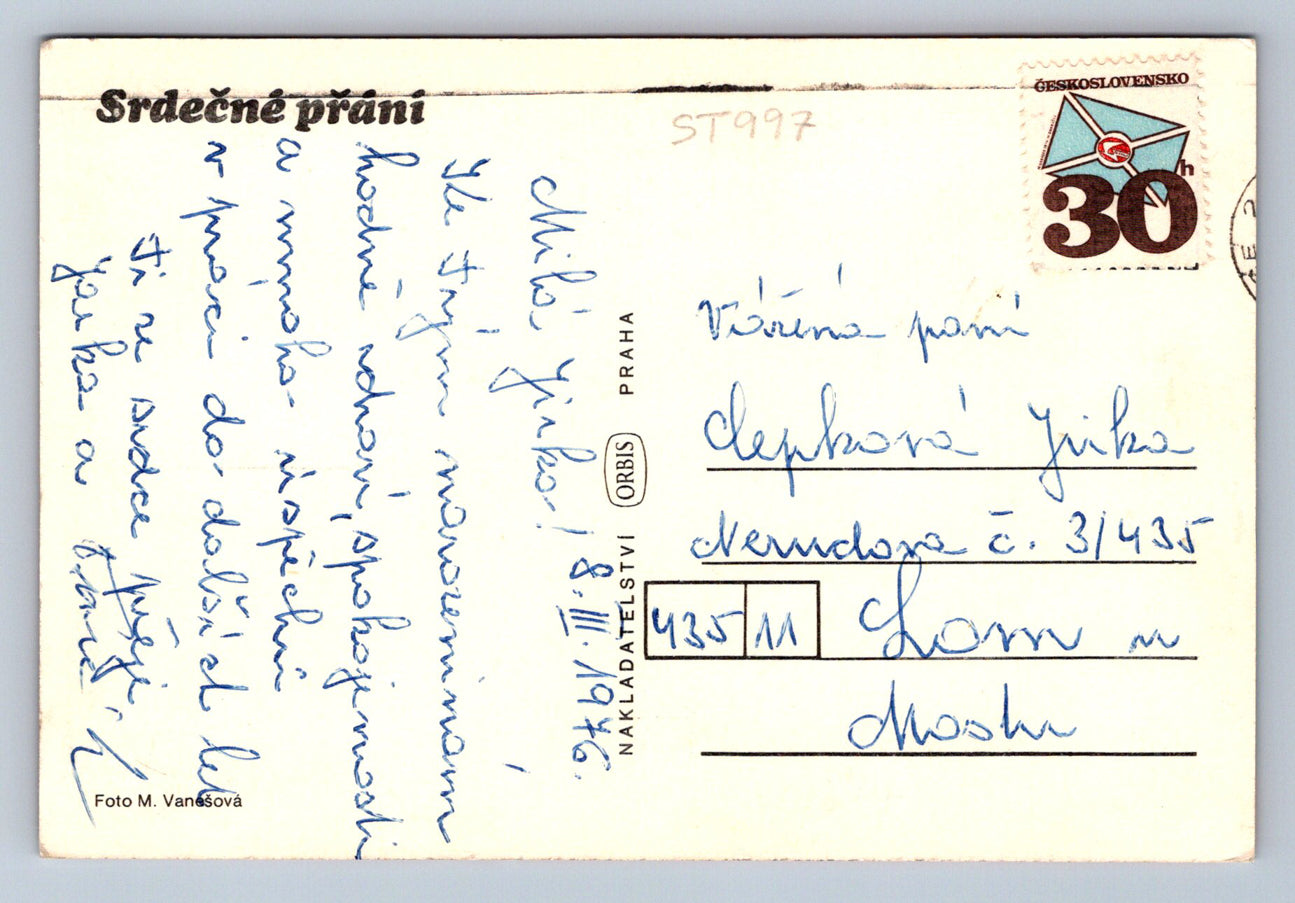 Srdečné přání
ST997
ČESKOSLOVENSKO
30h
8.III.1976.
Milá Jirko!
Ke Tvým narozeninám
hodně zdraví, spokojenosti
a mnoho úspěchů
v práci do dalších let
Ti ze srdce přejí
Jarka a
Foto M. Vanešová
NAKLADATELSTVÍ ORBIS PRAHA
Vážená paní
Čepková Jirka
Nerudova č. 3/435
435 11 Lom u
Mostu